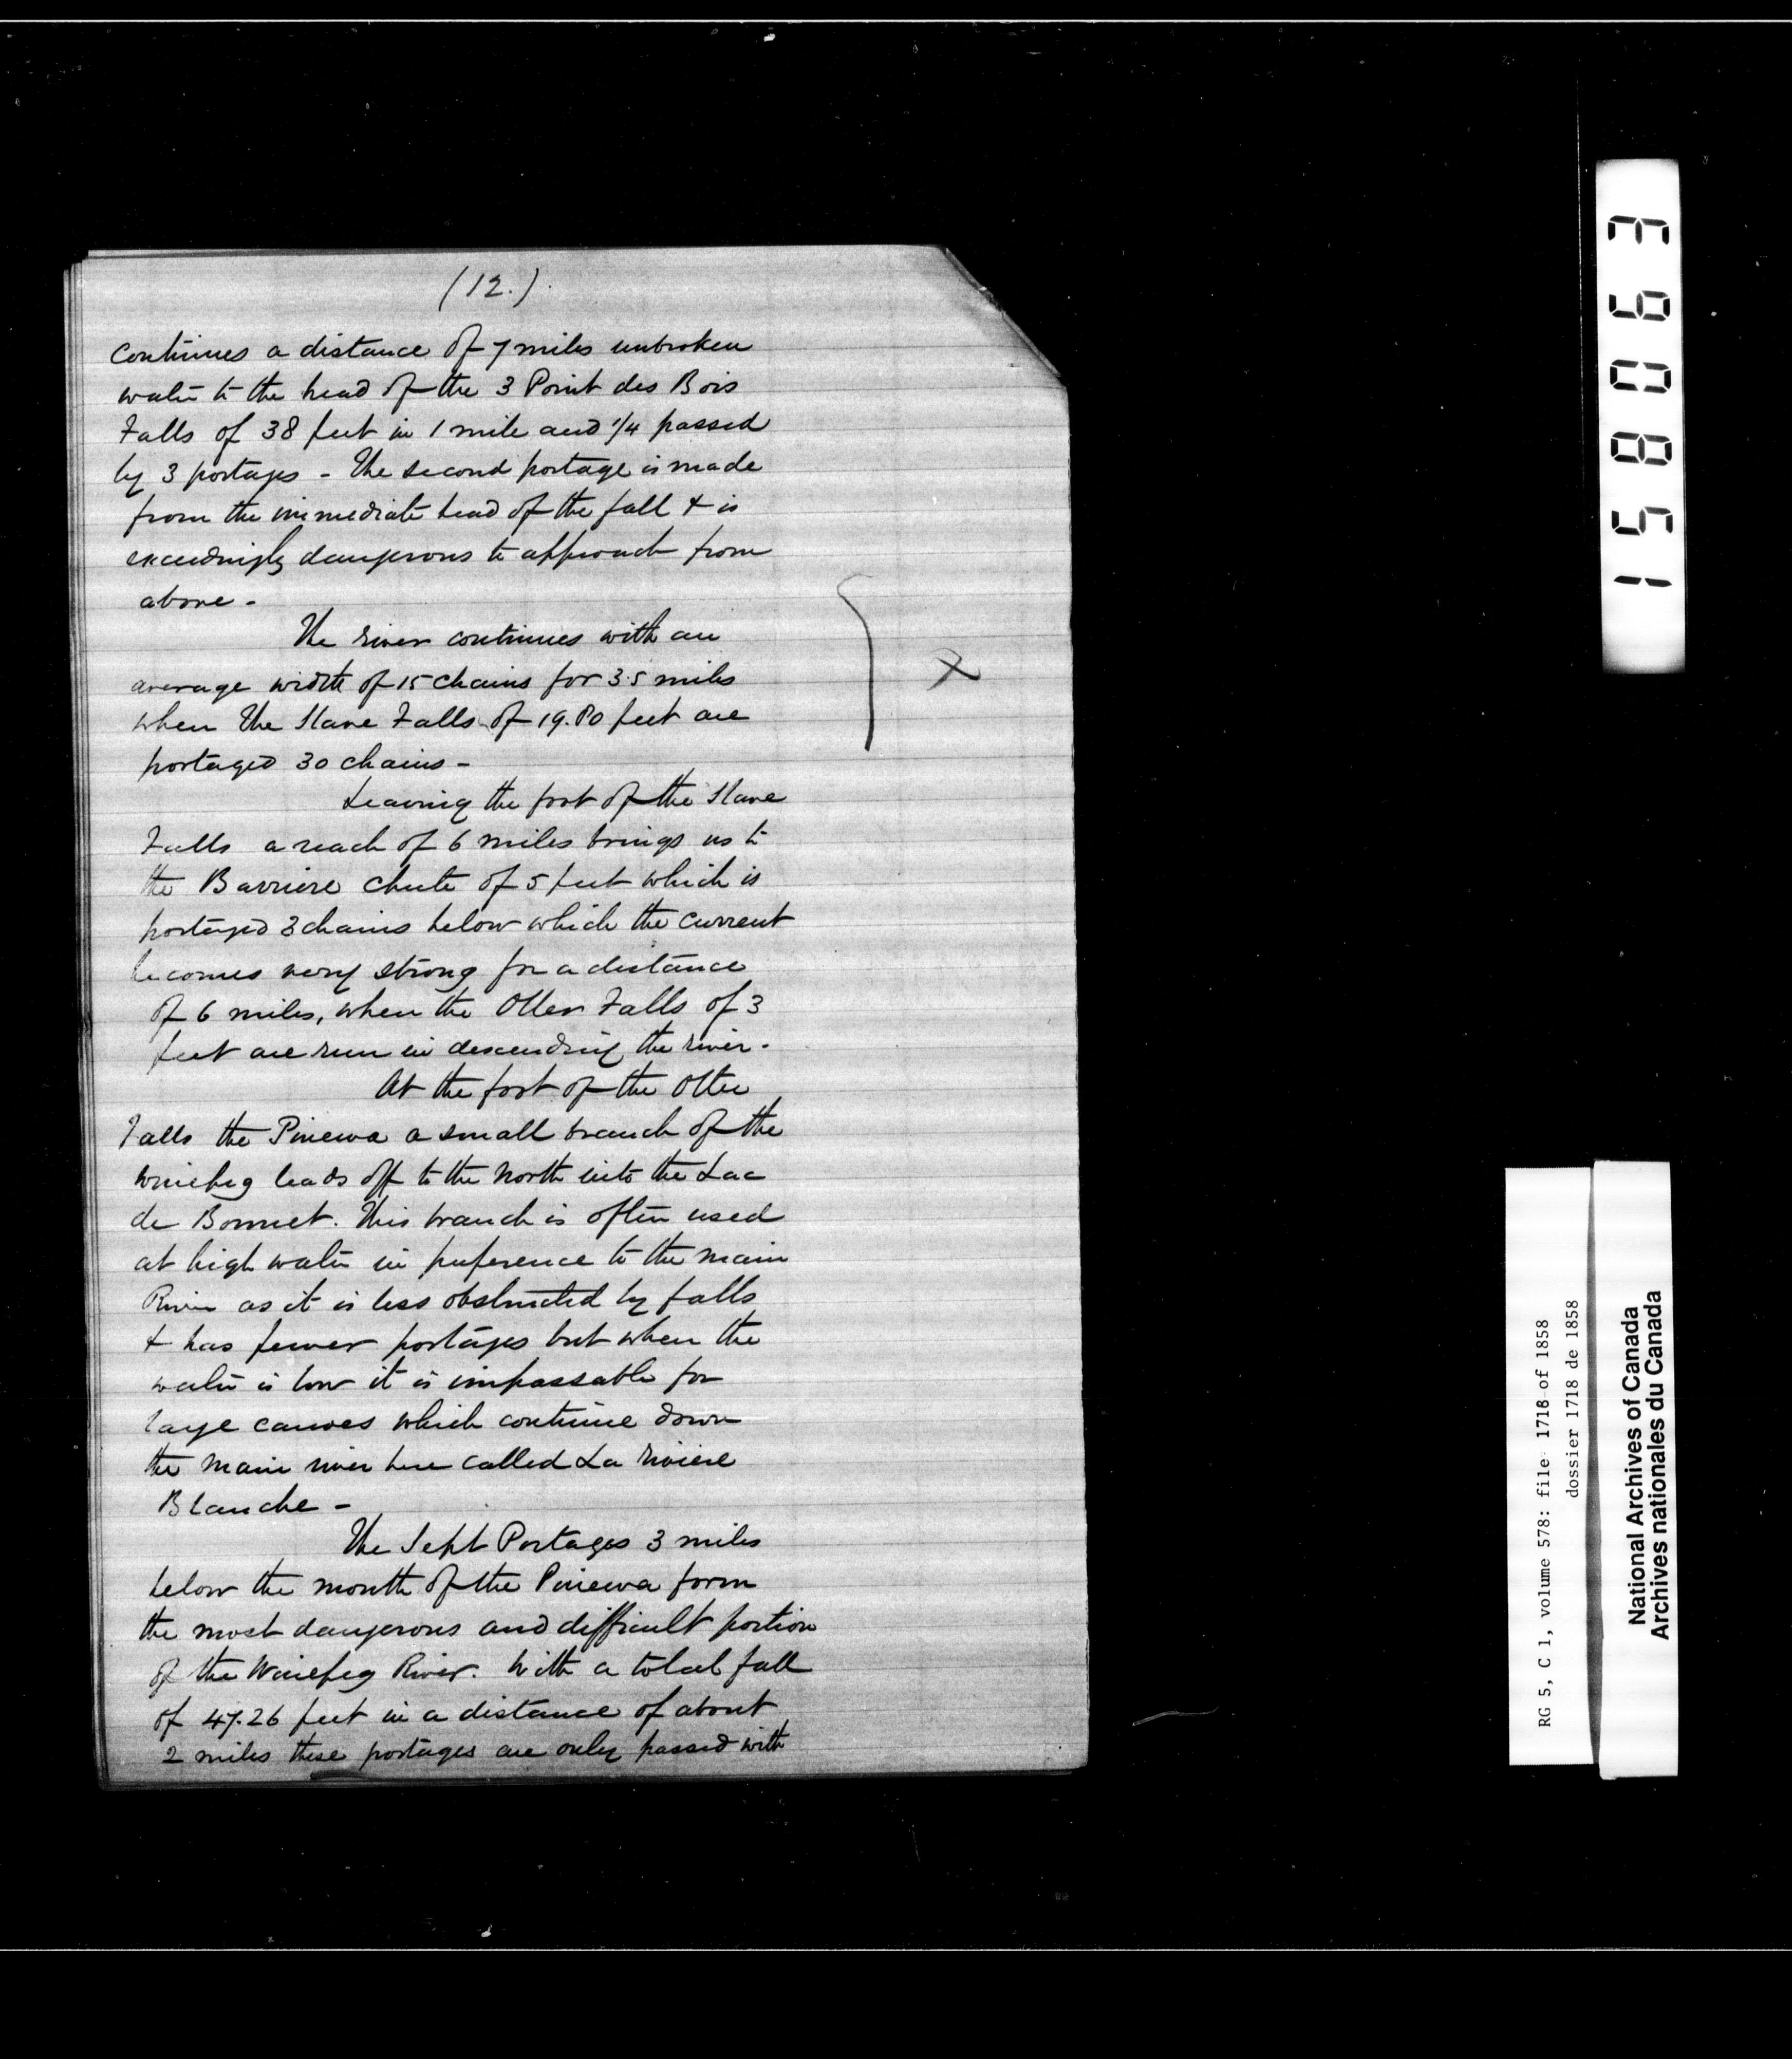 (12.)
continues a distance of 7 miles unbroken
water to the head of the 3 Point des Bois
Falls of 38 feet in 1 mile and 1/4 passed
by 3 portages - The second portage is made
from the immediate head of the fall & is
exceedingly dangerous to approach from
above -
The river continues with an
average width of 15 chains for 3.5 miles
when the Slave Falls of 19.80 feet are
portaged 30 chains -
Leaving the foot of the Slave
Falls a reach of 6 miles brings us to
the Barriere chute of 5 feet which is
portaged 3 chains below which the current
becomes very strong for a distance
of 6 miles, when the Otter Falls of 3
feet are run in descending the river.
At the foot of the Otter
Falls the Pinewa a small branch of the
Winipeg leads off to the North into the Lac
de Bonnet. This branch is often used
at high water in preference to the main
River as it is less obstructed by falls
& has fewer portages but when the
water is low it is impassable for
large canoes which continue down
the main river here called La riviere
Blanche -
The Sept Portages 3 miles
below the mouth of the Pinewa form
the most dangerous and difficult portion
of the Winipeg River. With a total fall
of 47.26 feet in a distance of about
2 miles these portages are only passed with
X
158063
RG 5, C 1, volume 578: file 1718 of 1858
dossier 1718 de 1858
National Archives of Canada
Archives nationales du Canada